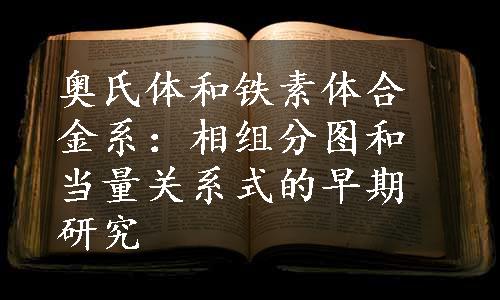 奥氏体和铁素体合
金系：相组分图和
当量关系式的早期
研究